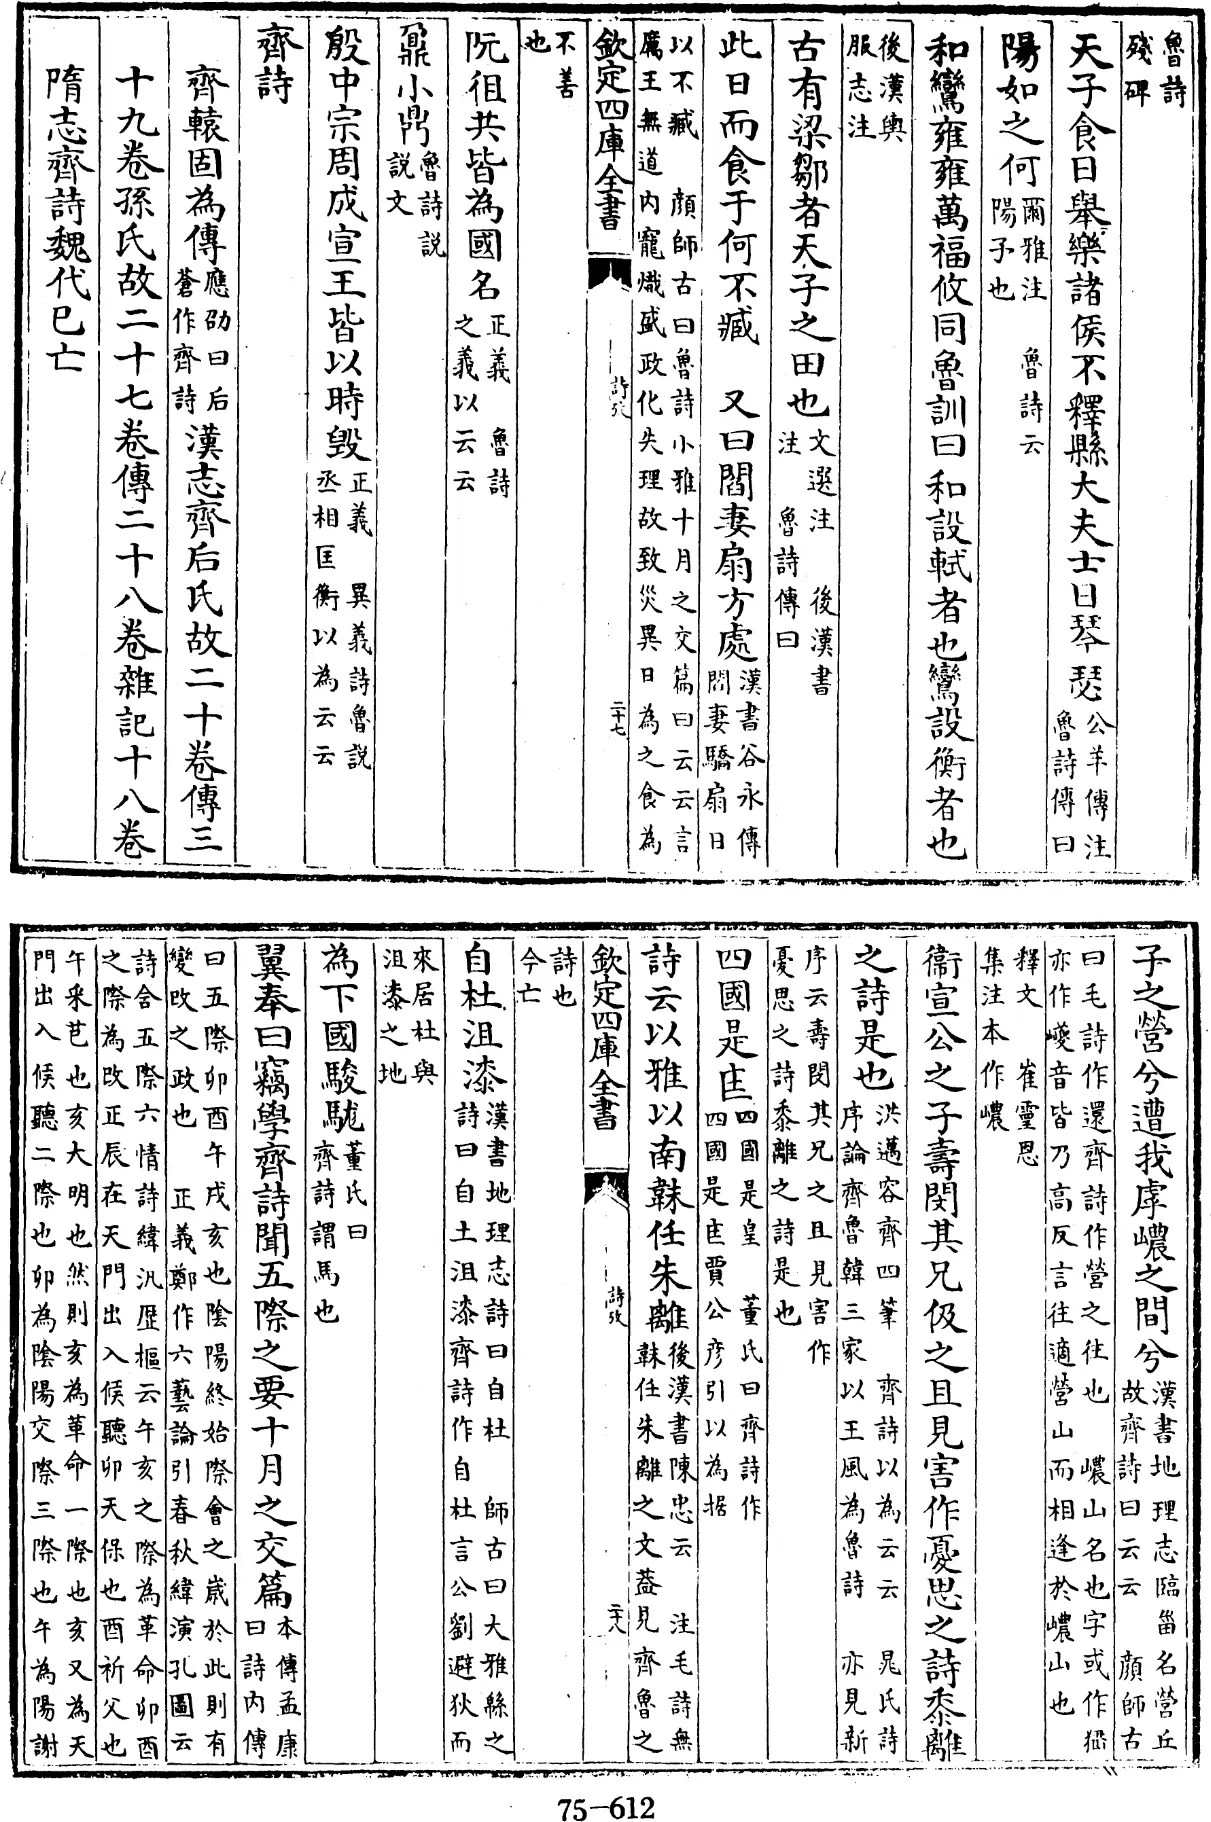 魯詩殘碑
天子食日舉樂諸侯不釋縣大夫士日琴瑟公羊傳注魯詩傳曰
陽如之何爾雅注　魯詩云陽予也
和鸞雍雍萬福攸同魯訓曰和設軾者也鸞設衡者也
後漢輿服志注
古有梁鄒者天子之田也文選注　後漢書注　魯詩傳曰
此日而食于何不臧　又曰閻妻扇方處漢書谷永傳閻妻驕扇日
以不臧　顏師古曰魯詩小雅十月之交篇曰云云言厲王無道内寵熾盛政化失理故致災異日為之食為
欽定四庫全書　詩攷　二十七
不善也
阮徂共皆為國名正義　魯詩之義以云云
鼐小鼎魯詩説説文
殷中宗周成宣王皆以時毀正義　異義詩魯説丞相匡衡以為云云
齊詩
齊轅固為傳應劭曰后蒼作齊詩漢志齊后氏故二十卷傳三
十九卷孫氏故二十七卷傳二十八卷雜記十八卷
隋志齊詩魏代已亡
子之營兮遭我虖峱之間兮漢書地理志臨甾名營丘故齊詩曰云云　顏師古
曰毛詩作還齊詩作營之往也　峱山名也字或作猱亦作巙音皆乃高反言往適營山而相逢於峱山也
釋文　崔靈恩集注本作峱
衞宣公之子壽閔其兄伋之且見害作憂思之詩黍離
之詩是也洪邁容齊四筆　齊詩以為云云　晁氏詩序論齊魯韓三家以王風為魯詩　亦見新
序云壽閔其兄之且見害作憂思之詩黍離之詩是也
四國是匡四國是皇　董氏曰齊詩作四國是匡賈公彦引以為据
詩云以雅以南韎任朱離後漢書陳忠云　注毛詩無韎任朱離之文葢見齊魯之
欽定四庫全書　詩攷　二十八
詩也今亡
自杜沮漆漢書地理志詩曰自杜　師古曰大雅緜之詩曰自土沮漆齊詩作自杜言公劉避狄而
來居杜與沮漆之地
為下國駿駹董氏曰齊詩謂馬也
翼奉曰竊學齊詩聞五際之要十月之交篇本傳孟康曰詩内傳
曰五際卯酉午戌亥也陰陽終始際會之嵗於此則有變改之政也　正義鄭作六藝論引春秋緯演孔圖云
詩含五際六情詩緯汎歴樞云午亥之際為革命卯酉之際為改正辰在天門出入候聽卯天保也酉祈父也
午采芑也亥大明也然則亥為革命一際也亥又為天門出入候聽二際也卯為陰陽交際三際也午為陽謝
75-612